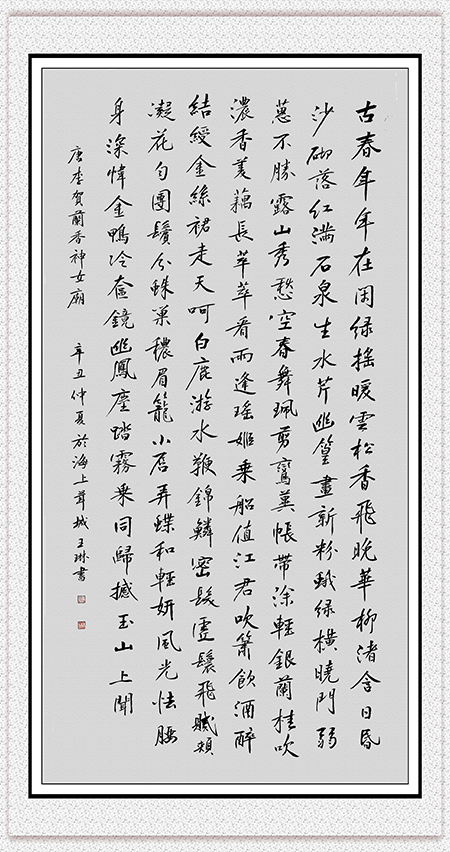 古春年年在閑緑摇暖雲松香飛晚華柳渚含日昏
沙砌落紅滿石泉生水芹幽篁畫新粉蛾緑横曉門弱
蕙不勝露山秀愁空春舞珮剪鸞翼帳帶塗輕銀蘭桂吹
濃香菱藕長莘莘看雨逢瑶姬乘船值江君吹簫飲酒醉
結綬金絲裙走天呵白鹿游水鞭錦鱗密髮虚鬟飛腻頰
凝花勻團鬢分蛛巢穠眉籠小唇弄蝶和輕妍風光怯腰
身深幃金鴨冷奩鏡幽鳳塵踏霧乘同歸撼玉山上聞
唐李賀蘭香神女廟 辛丑仲夏於海上茸城王琳書